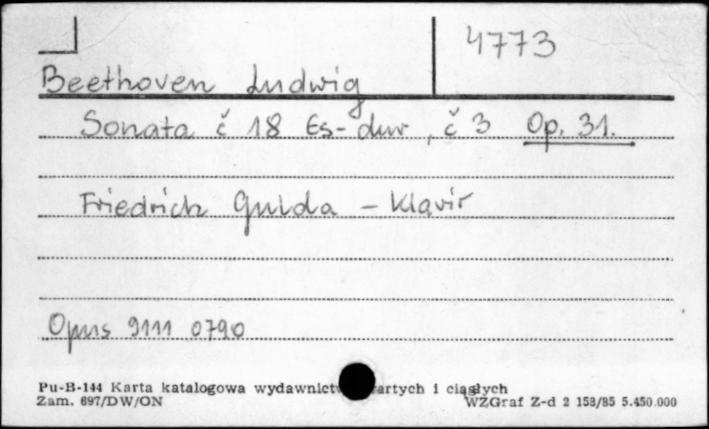 4773
Beethoven Ludwig
Sonata č 18 Es-dur, č 3 Op. 31.
Friedrich Gulda - klavír
Opus 9111 0790
Pu-B-144 Karta katalogowa wydawnict artych i ciągłych
Zam. 697/DW/ON WZGraf Z-d 2 158/85 5.450.000